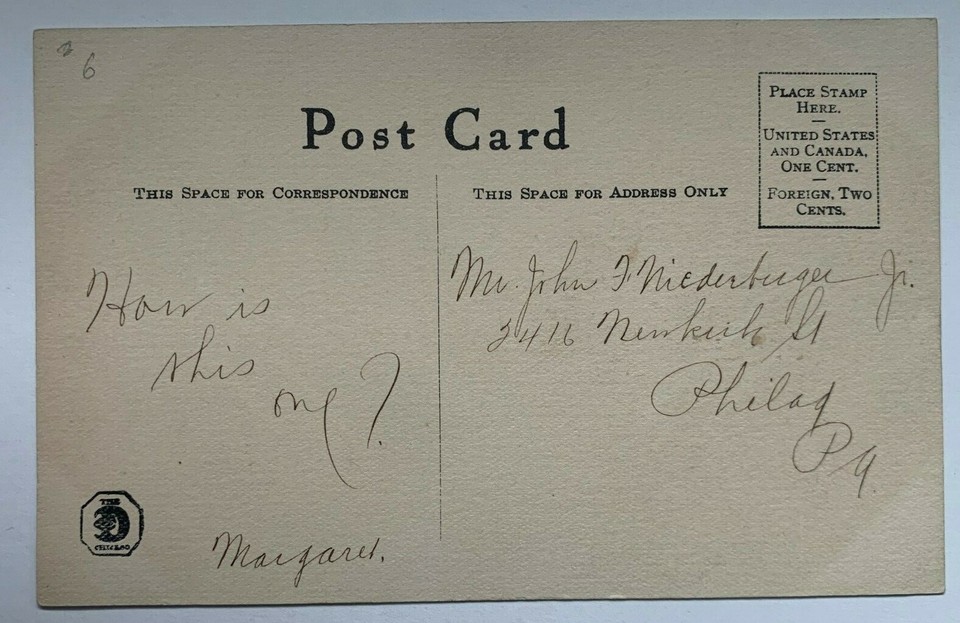 6
Post Card
PLACE STAMP
HERE.
UNITED STATES
AND CANADA,
ONE CENT.
FOREIGN, TWO
CENTS.
THIS SPACE FOR CORRESPONDENCE
THIS SPACE FOR ADDRESS ONLY
How is
this
one?
Margaret.
Mr. John F Niederburger Jr.
2416 Newkirk St
Philad
Pa.
THE